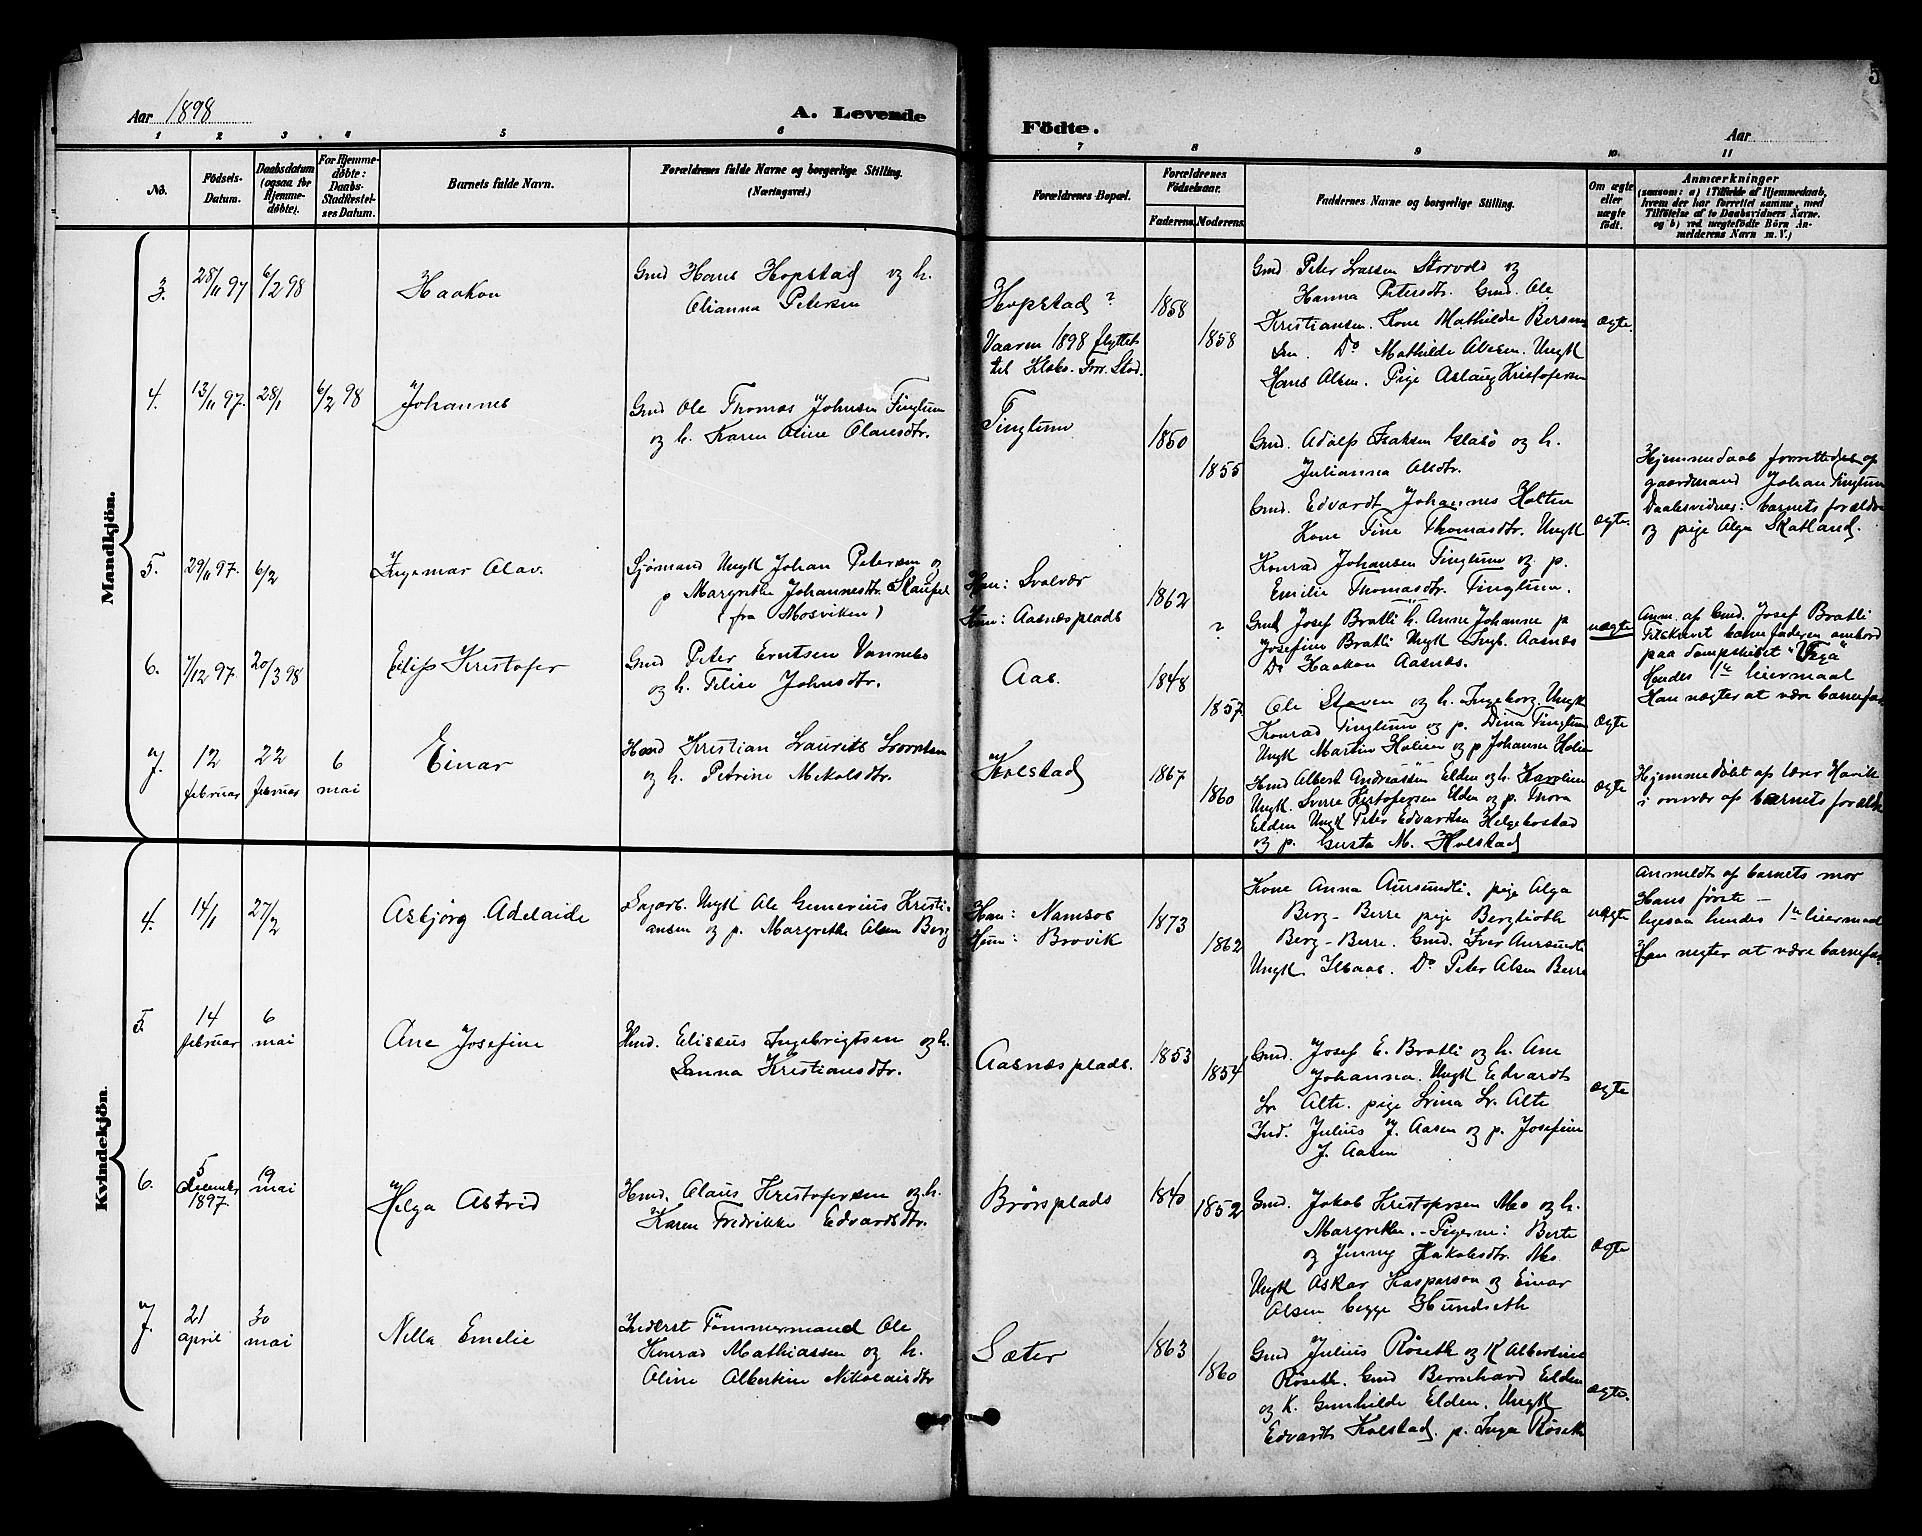 5
Aar 1898
A. Levende
Födte.
Aar
1 2 3 4 5 6 7 8 9 10. 11
No.
Födsels-Datum.
Daabsdatum (ogsaa for Hjemme-døbte).
For Hjemme-døbte: Daabs-Stadfæstel-ses Datum.
Barnets fulde Navn.
Forældrenes fulde Navne og borgerlige Stilling. (Næringsvei.)
Forældrenes Bopæl.
Forældrenes Födselsaar.
Faderens. Moderens.
Faddernes Navne og borgerlige Stilling.
Om ægte eller uægte födt.
Anmærkninger
(saasom: a) i Tilfælde af Hjemmedaab,
hvem der har forrettet samme, med
Tilföielse af to Daabsvidners Navne.
og b) ved uægtefödte Börn An-
melderens Navn m. V.)
Mandkjön.
3. 28/11 97 6/2 98 Haakon
Gmd Hans Hopstad og h.
Olianna Petersen
Hopstad ?
Vaaren 1898 flyttet
til Stod.
1858
1858
Gmd Peter Larsen Storvold og
Hanna Petersdtr. Gmd. Ole
Kristiansen. Kone Mathilde
Do Mathilde Olsen. Ungk
Hans Olsen. Pige Aslaug Kristofersen
ægte.
4. 13/11 97. 28/1 6/2 98 Johannes
Gmd Ole Thomas Johnsen Tingtun
og h. Karen Oline Olausdtr.
Tingtun
1850
1855
Gmd. Adolf Isaksen og h.
Julianna Olsdtr.
Gmd. Edvardt Johannes Holten
Kone Fine Thomasdtr. Ungk
Konrad Johansen Tingtun og p.
Emilie Thomasdtr. Tingtun.
ægte.
Hjemmedaab forrettedes af
gaardmand Johan Tingtun
Daabsvidner: barnets forældre
og pige Olga Skatland.
5. 29/11 97. 6/2 Ingemar Olav.
Sjømand Ungk Johan Petersen og
p Margrethe Johannesdtr.
(fra Mosviken)
Han: Svolvær
Hun: Aasnesplads
1862
?
Gmd Josef Bratli h. Anne Johanne p
Josefine Bratli Ungk Ingb. Aasnes
Do Haakon Aasnes.
uægte
Anm. af Gmd. Josef Bratli
Tilskrevet barnefaderen ombord
paa dampskibet "Vega"
Hendes 1te leiermaal
Han nægter at være barnefar
6. 7/12 97. 20/3 98 Eilif Kristofer
Gmd Peter Erntsen Vannebo
og h. Johnsdtr.
Aas.
1848
1857
Ole Staven og h. Ingeborg. Ungk
Konrad Tingtun og p. Dina Tingtun
Ungk Martin Holien og p Johanna Holien
ægte
7. 12 februar 22 februar 6 mai Einar
Hmd Kristian Laurits Lorntsen
og h. Petrine Nikolsdtr.
Kolstad
1867
1860
Hmd Albert Andreassen Elden og h. Karoline
Ungk. Sverre Kristofersen Elden og p. Thora
Elden Ungk Peter Edvardsen Helgebostad
og p. Gusta M. Holstad
ægte
Hjemmedøbt af lærer Havik
i nærvær af barnets forældre
Kvindekjön.
4. 14/1 27/2 Asbjørg Adelaide
Sagarb. Ungk Ole Gemerius Kristi-
ansen og p. Margrethe Olsen Berg
Han: Namsos
Hun: Brovik
1873
1862
Kone Anna Aursundli, pige Olga
Berg-Berre pige Bergliotk
Berg-Berre. Gmd. Iver Aursundli
Ungk. Do Peter Olsen Berre
uægte
Anmeldt af barnets mor
Hans første -
ligesaa hendes 1te leiermaal
Han negter at være barnefar
5. 14 februar 6 mai Ane Josefine
Hmd. Elisæus Ingebrigtsen og h.
Kristiansdtr.
Aasnæsplads.
1853
1854
Gmd. Josef E. Bratli og h. Ane
Johanna. Ungk Edvardt
Sr. Alte. pige Lrina Sr. Alte
Ind. Julius J. Aasen og p. Josefine
J. Aasen
ægte
6. 5 december 1897 19 mai Helga Astrid
Hmd. Olaus Kristofersen og h.
Karen Fredrikke Edvardsdtr.
Brørsplads
1840
1852
Gmd. Jakob Kristofersen Mo og h.
Margrethe.-Pigerne: Berte
og Jenny Jakobsdtr. Mo
Ungk Oskar Kaspersen og Einar
Olsen begge Hundseth
ægte
7. 21 april 30 mai Nella Emelie
Inderst Tømmermand Ole
Konrad Mathiassen og h.
Oline Albertine Nikolaisdtr
Sæter
1863
1860
Gmd Julius Røseth og K Albertine
Røseth. Gmd Bernhard Elden
og K. Gunhilde Elden. Ungk
Edvardt Kolstad, p. Inga Røseth
ægte.